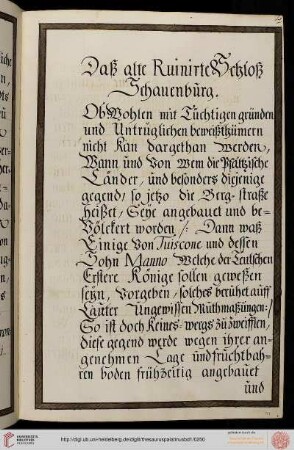 Daß alte Ruinirte Schloß
Schauenburg.
Ob Wohlen mit Tüchtigen gründen
und Untrüglichen beweißthümern
nicht Kan dargethan werden,
Wann und Von Wem die Pfältzische
Länder, und besonders diejenige
gegend, so jetzo die Berg-straße
heißet, Seye angebauet und be-
Völckert worden /: Dann waß
Einige Von Tuiscone und dessen
Sohn Manno Welche der Teutschen
Erstere Könige sollen geweßen
seyn, Vorgeben, solches berühet auff
Lauter Ungewissen Muthmaßungen :/
So ist doch Keines-wegs zu zweifflen,
diese gegend werde wegen ihrer an-
genehmen Lage und früchtbah-
ren boden frühzeitig angebauet
und
http://digi.ub.uni-heidelberg.de/diglit/thesauruspalatinusbd1/0260